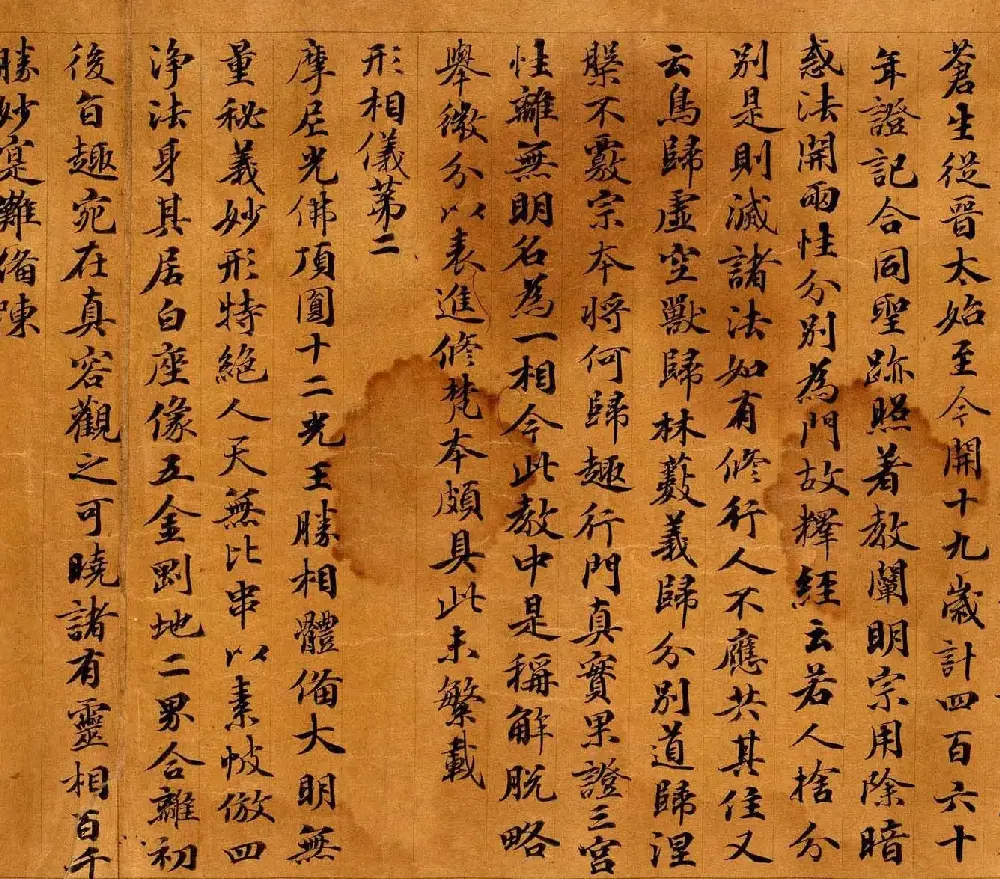 蒼生從晉太始至今開十九歲計四百六十
年證記合同聖跡照著教闡明宗用除暗
惑法開兩性分別為門故釋經云若人捨分
別是則滅諸法如有修行人不應共其住又
云鳥歸虛空獸歸林藪義歸分別道歸涅
槃不覈宗本將何歸趣行門真實果證三宮
性離無明名為一相今此教中是稱解脫略
舉微分以表進修梵本頗具此未繁載
形相儀第二
摩尼光佛頂圓十二光王勝相體備大明無
量秘義妙形特絕人天無比串以素帔倣四
淨法身其居白座像五金剛地二界合離初
後旨趣宛在真容觀之可曉諸有靈相百千
勝妙寔難備陳